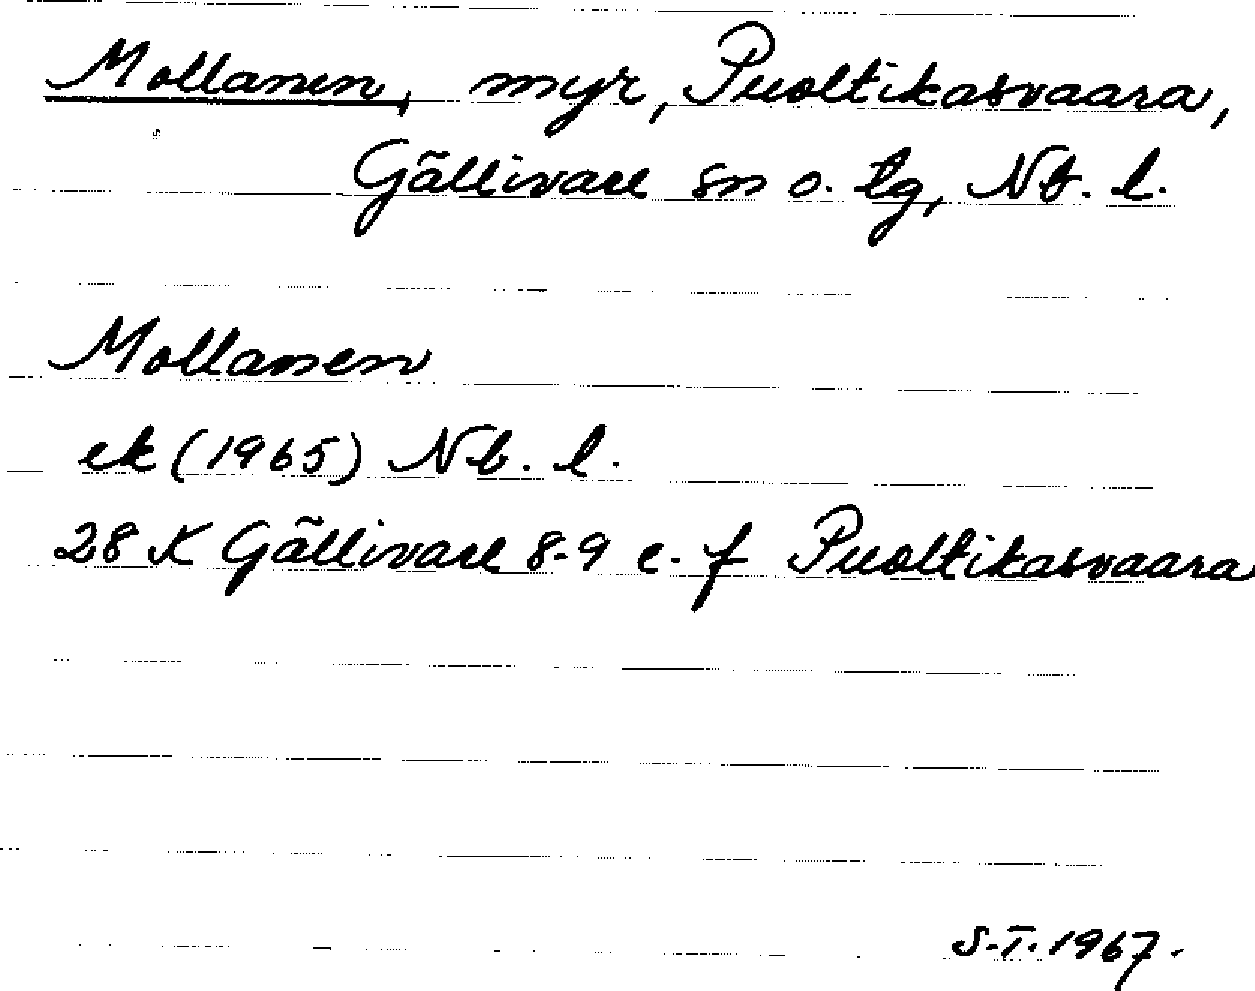 Mollanen, myr, Puoltikasvaara,
Gällivare sn o. tg, Nb. l.
Mollanen
ek (1965) Nb. l.
28 K Gällivare 8-9 e. f Puoltikasvaara
S.T. 1967.